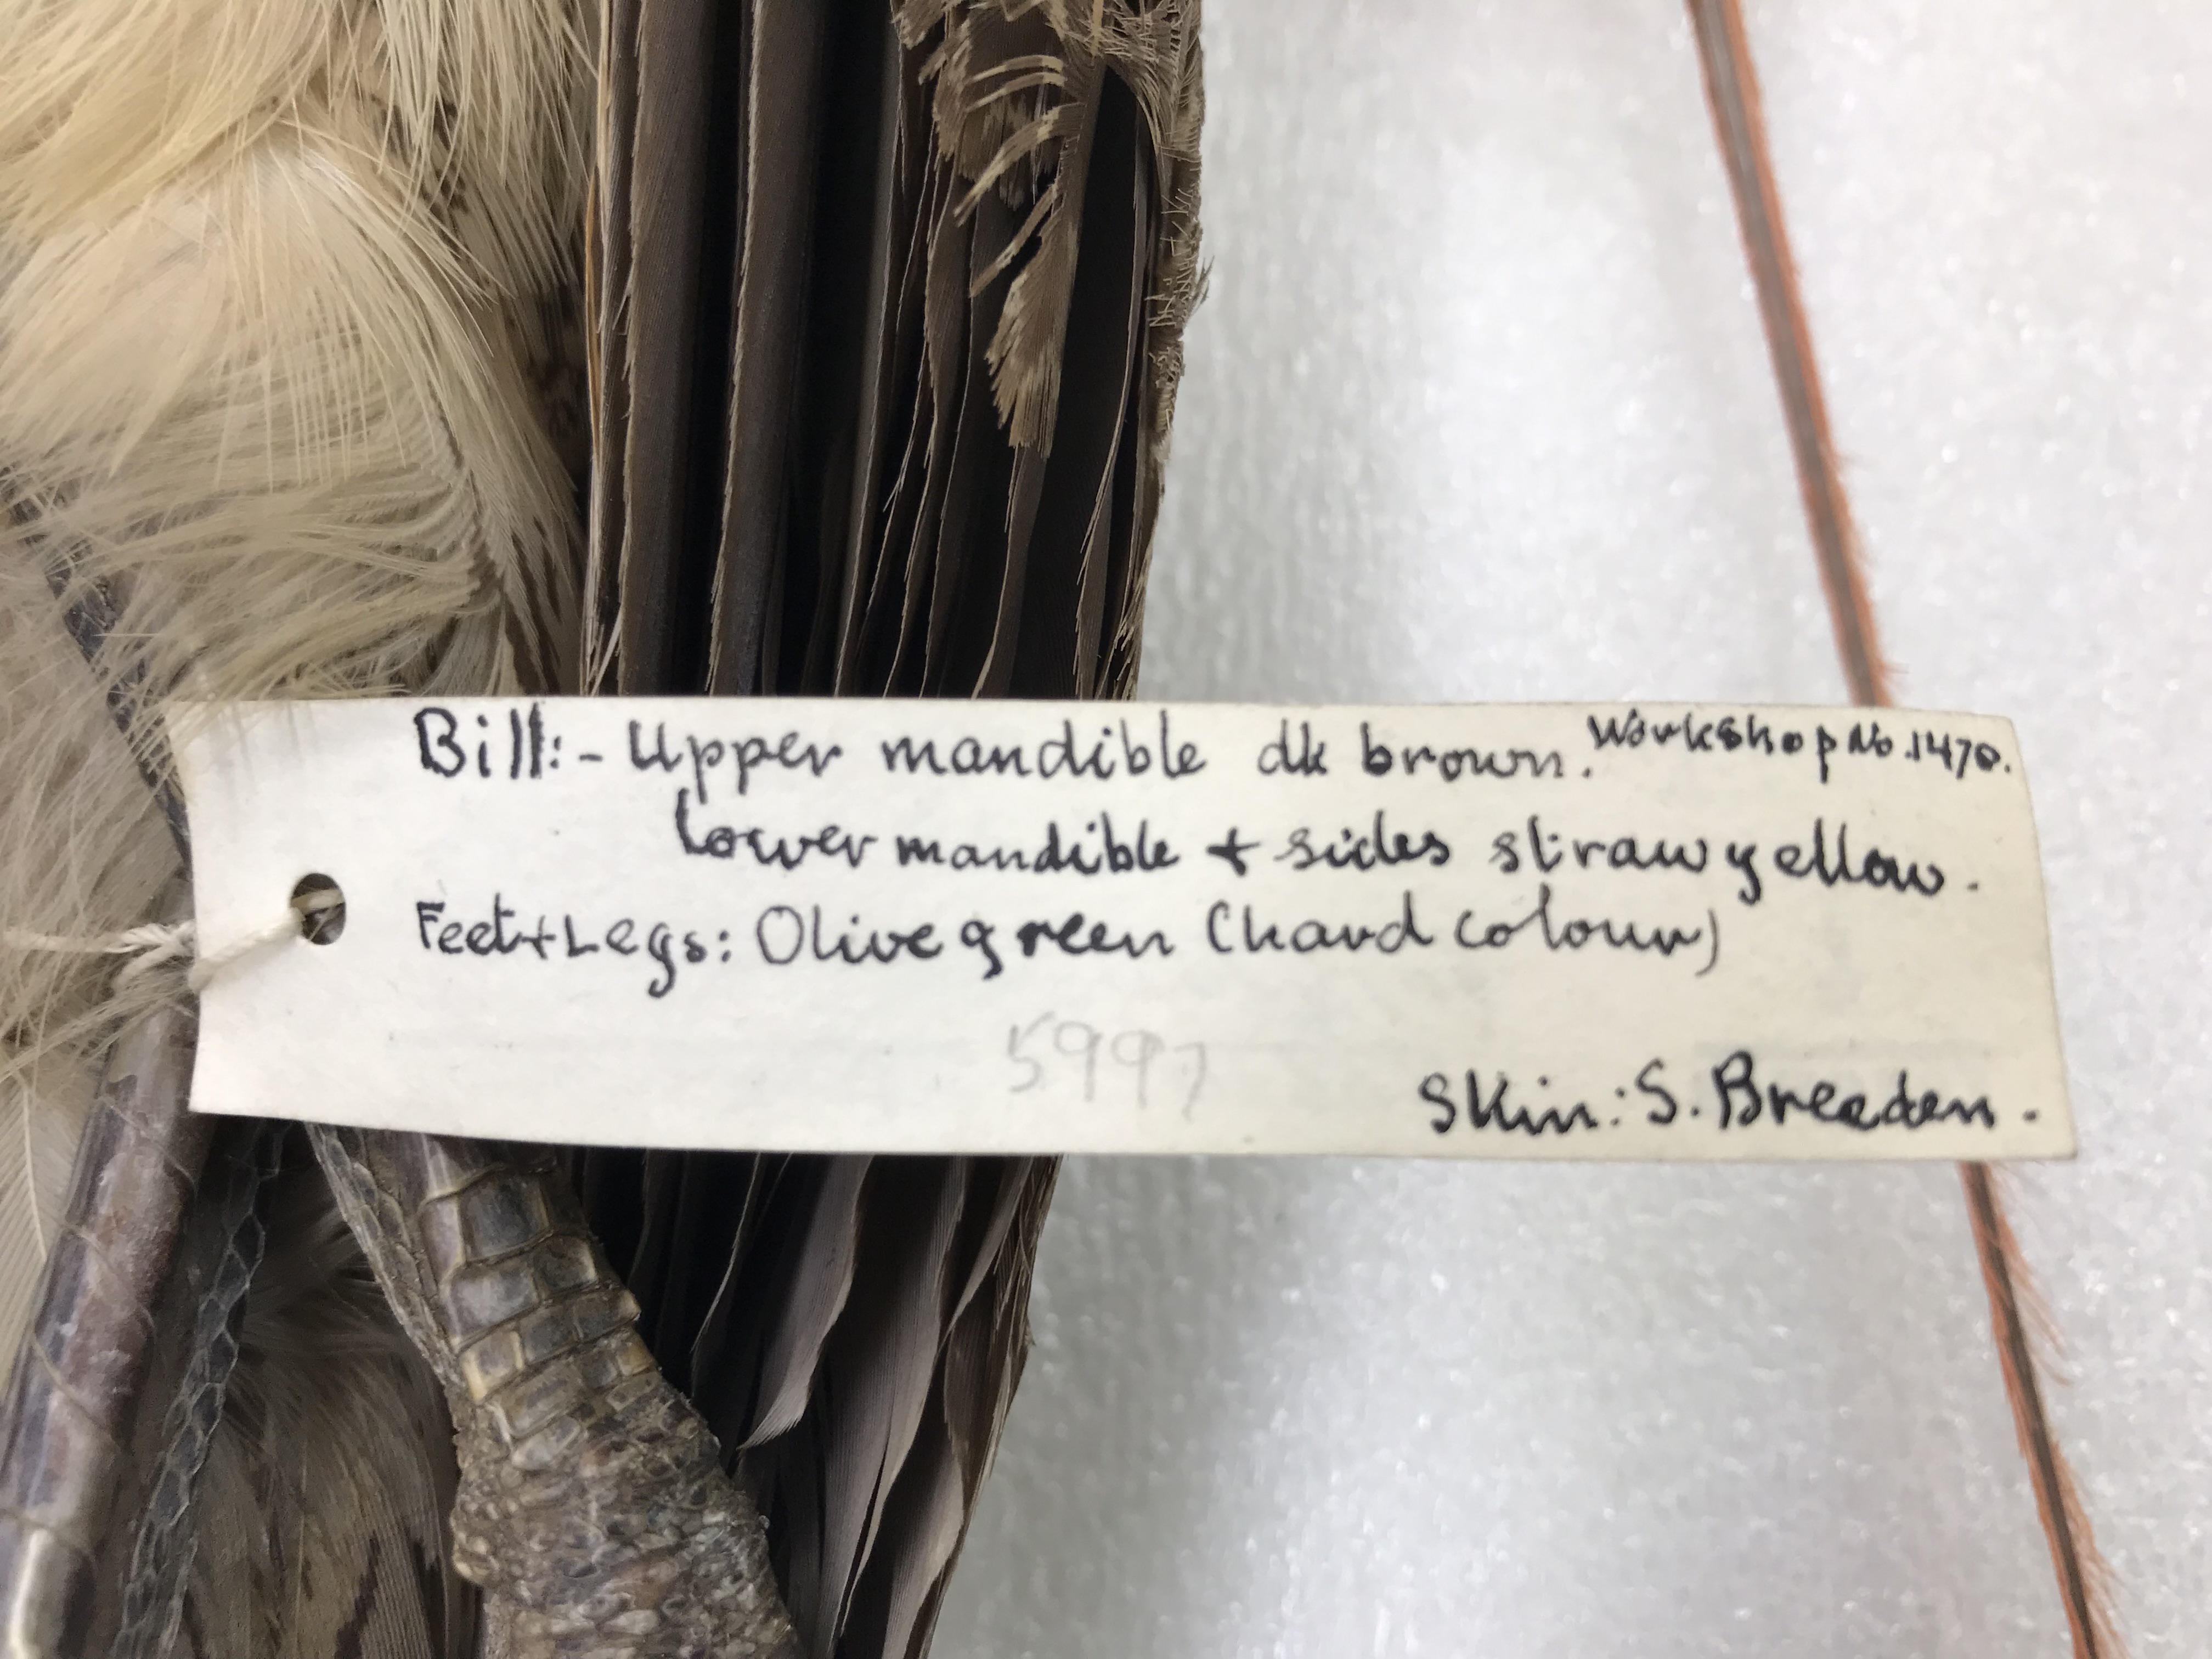 Bill:- Upper mandible dk brown. Workshop No. 1470.
Lower mandible + sides straw yellow.
Feet + Legs: Olive green (hard colour)
5997
Skin: S. Breeden.